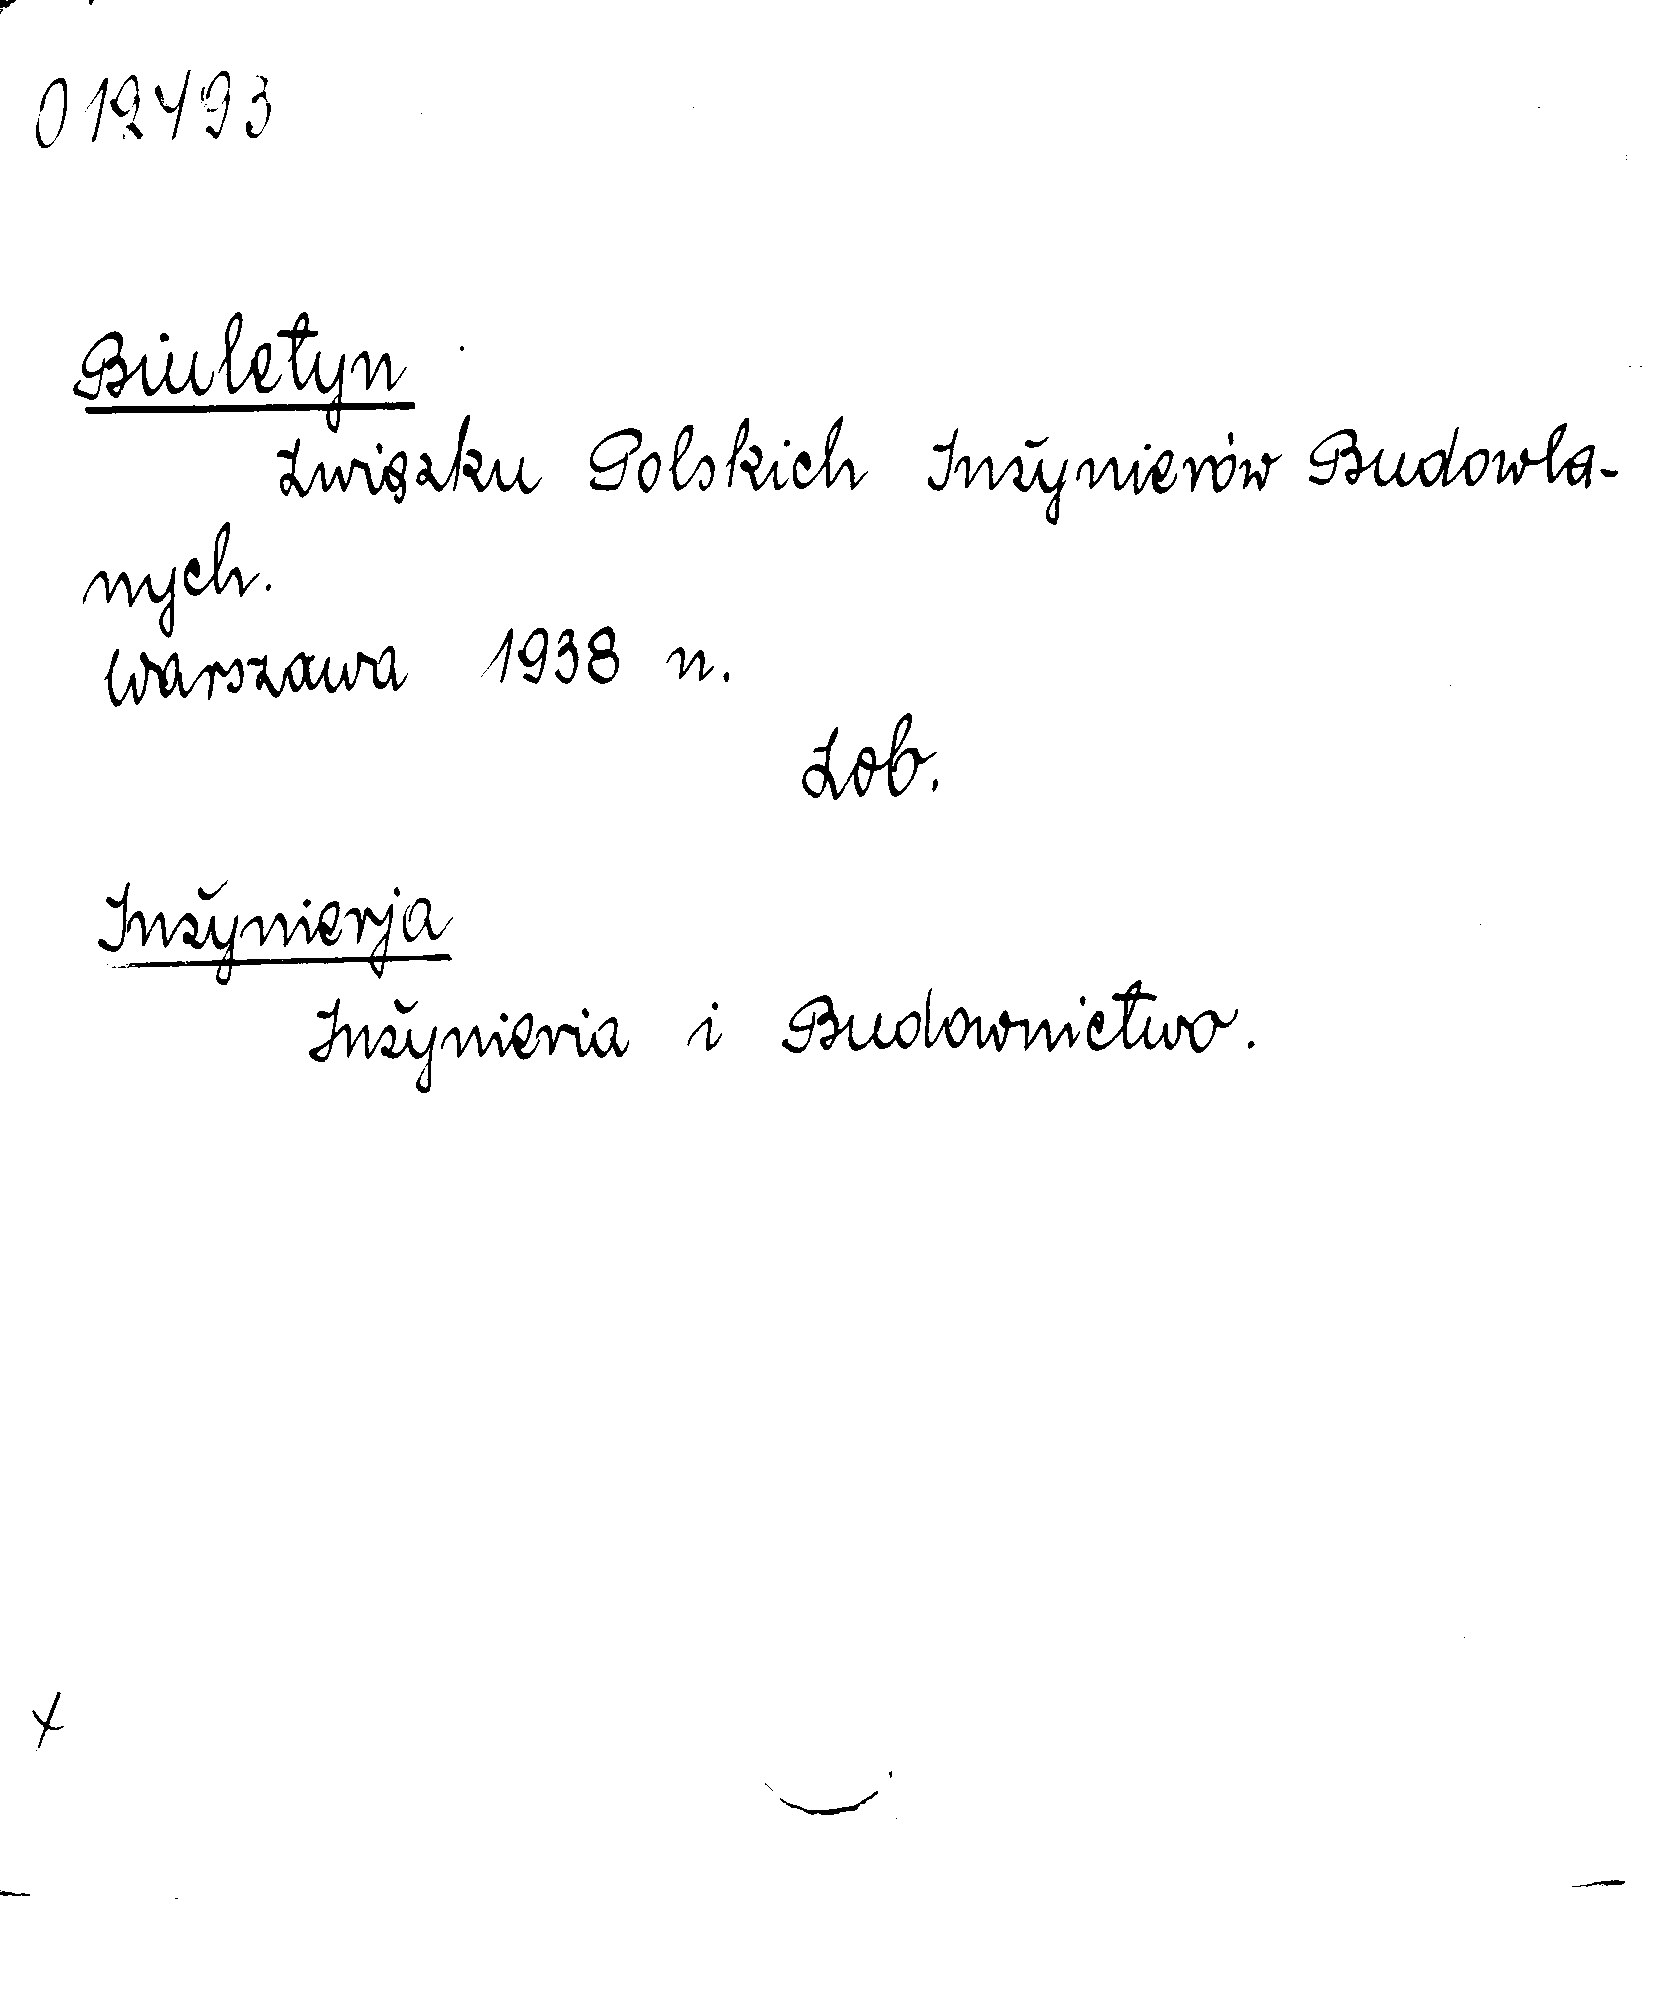 012493
Biuletyn
Związku Polskich Inżynierów Budowla-
nych.
Warszawa 1938 n.
Zob.
Inżynierja
Inżynieria i Budownictwo.
x